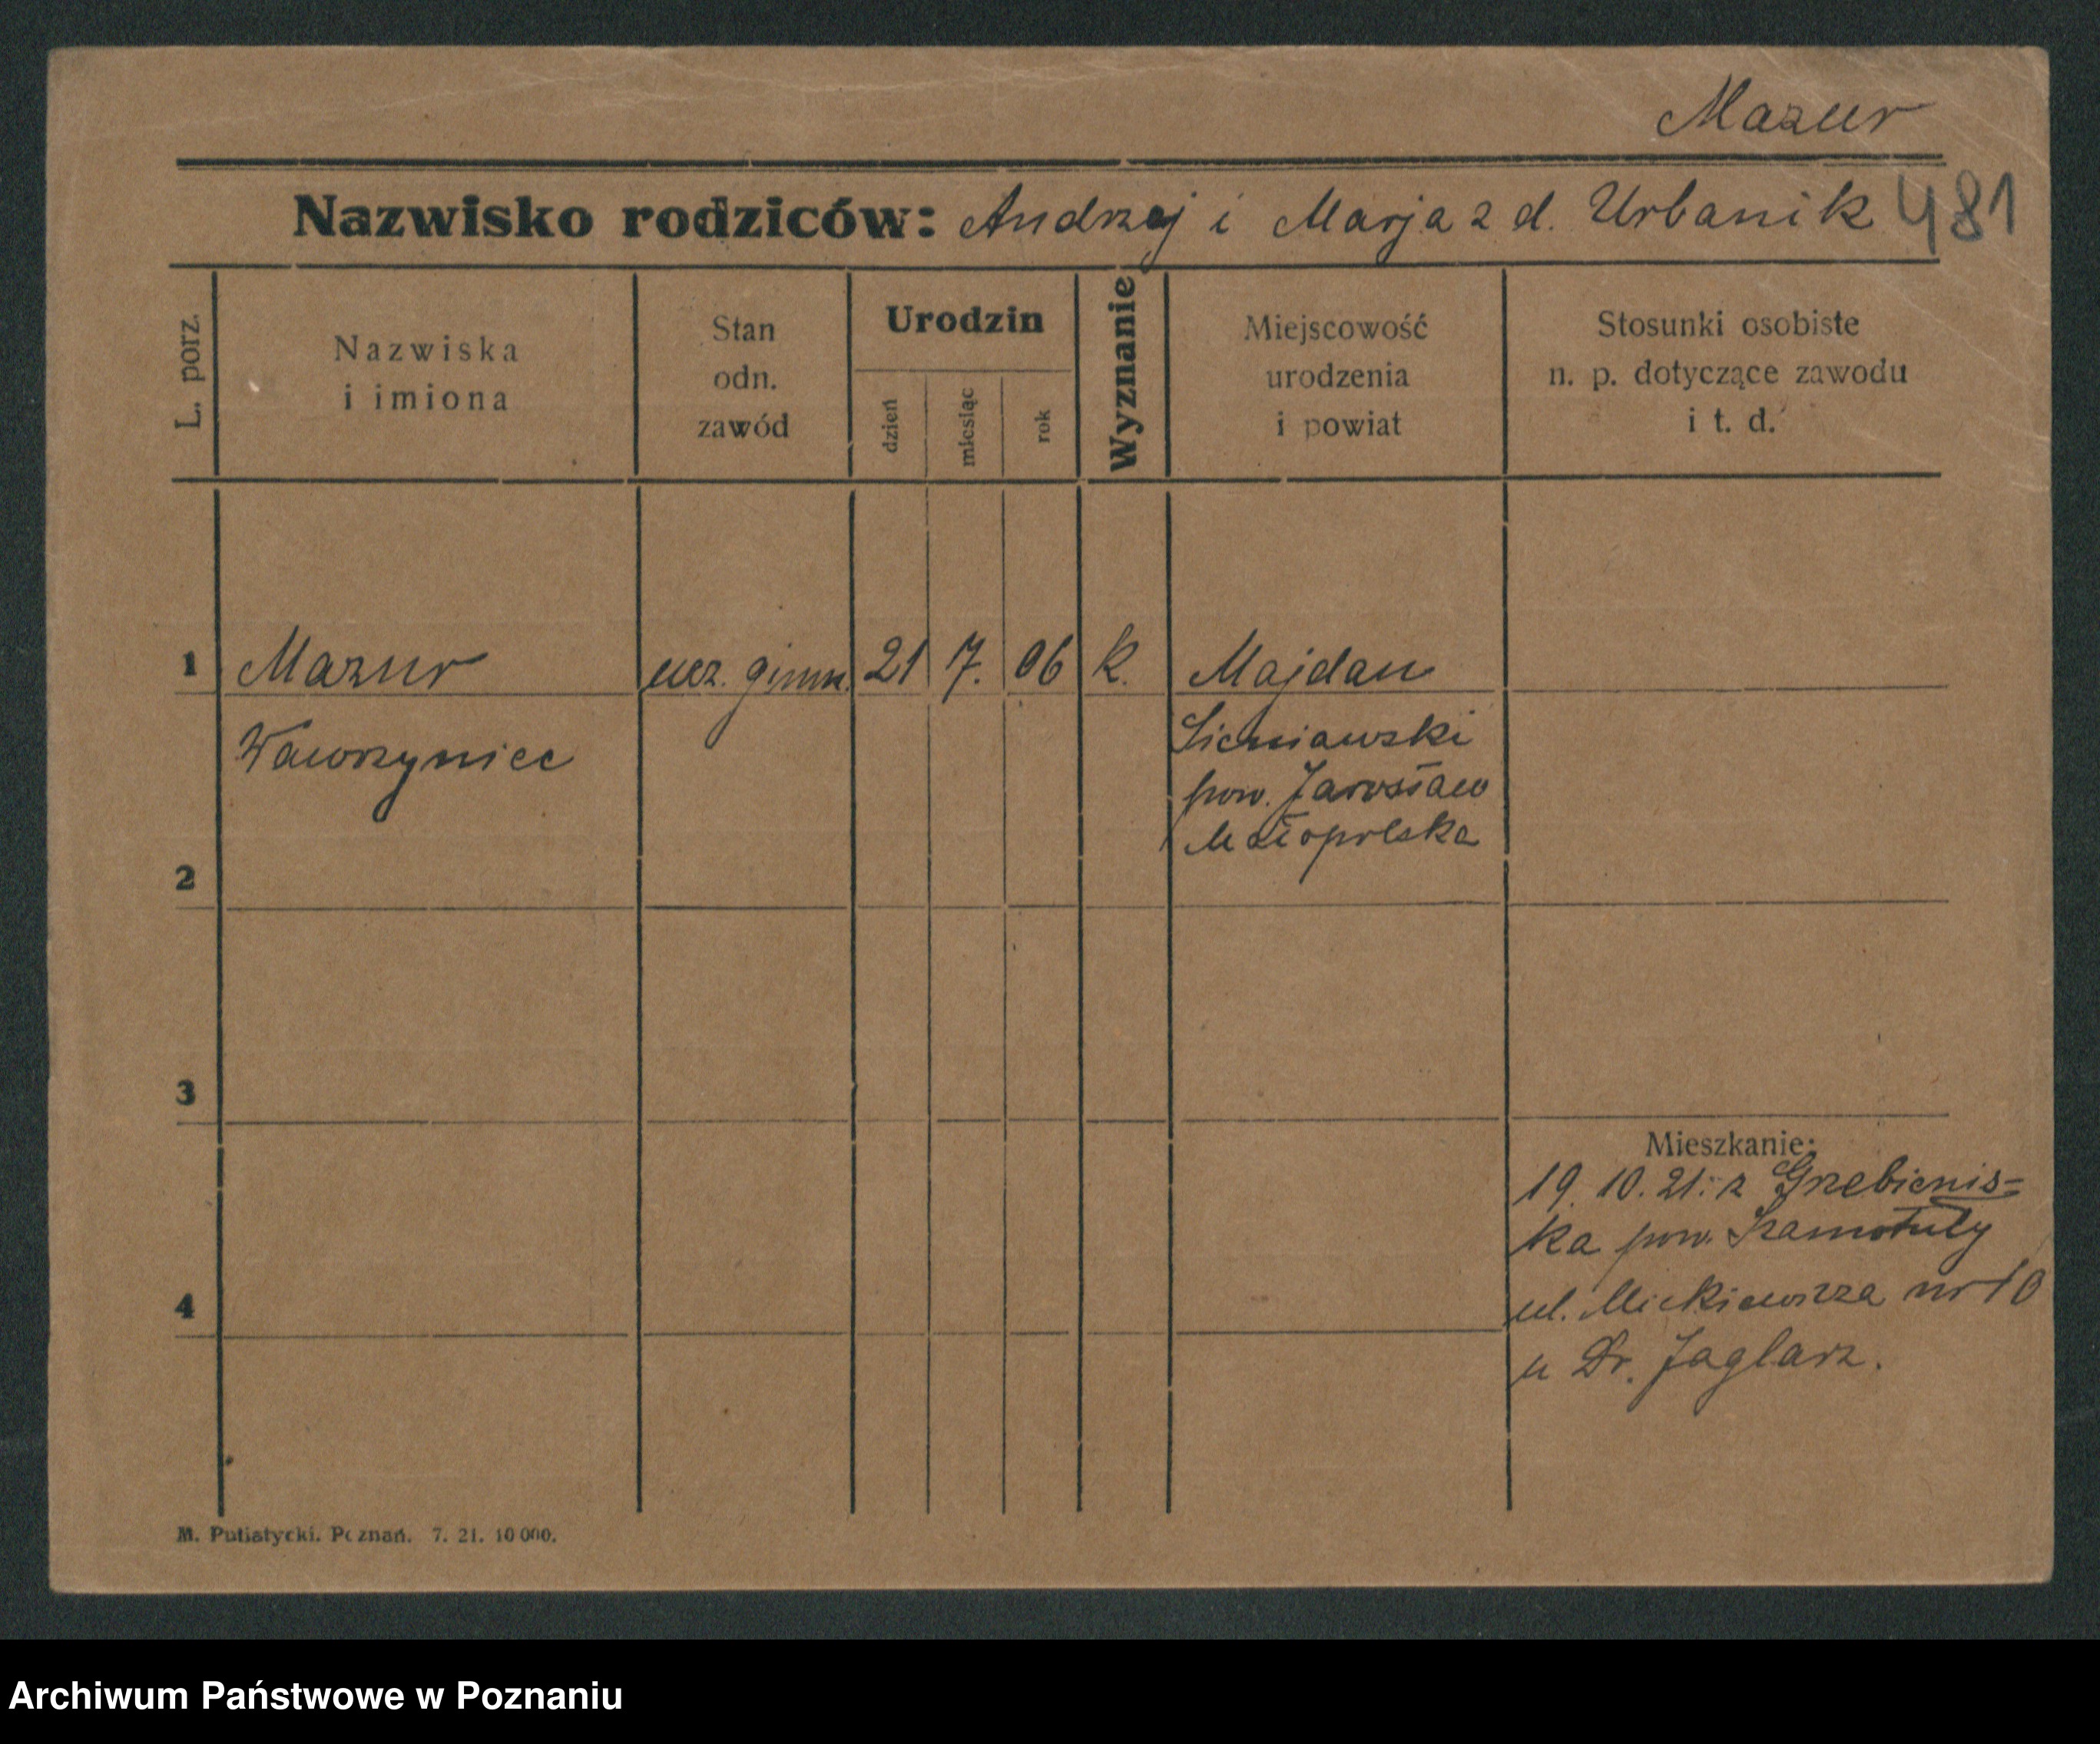 Mazur
Nazwisko rodziców: Andrzej i Marja z d. Urbanik 481
L. porz.
Nazwiska
i imiona
Stan
odn.
zawód
Urodzin
dzień
miesiąc
rok
Wyznanie
Miejscowość
urodzenia
i powiat
Stosunki osobiste
n. p. dotyczące zawodu
i t. d.
1 Mazur ucz. gimn. 21 7. 06 k. Majdan
Wawrzyniec
Sieniawski
pow. Jarosław
Małopolska
2
3
Mieszkanie:
19. 10. 21: z Grzebienis=
ka pow. Szamotuły
ul. Mickiewicza nr 10
u Dr. Jaglarz.
4
M. Putiatycki. Poznań. 7. 21. 10 000.
Archiwum Państwowe w Poznaniu